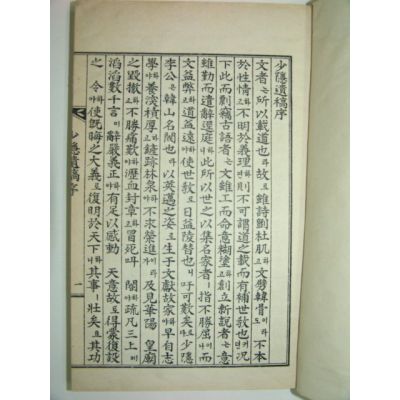 少隱遺稿序
文者는所以載道也라故로維詩劉杜肌고文劈韓骨도不本
於性情고不明於義理則不可謂道之載而有補世敎也況
下此而剽竊古語者는文雖工而命意糊塗고創立新說者는意
雖勤而遺辭逕庭니此所以世之以集名家者ㅣ指不勝屈이나而
文益弊고道益遠야使世敎로日益陵替也니吁可歎矣로다少隱
李公은韓山名閥也라以英邁之姿로生于文獻故家야早自志
學야養深積厚고鏟跡林泉야不求榮進이러니及見華陽皇廟
之毁撤고不勝痛歎야瀝血封章고冒死叫閤니疏凡三上에
滔滔數千言이辭嚴義正야有足以感動天意故로得蒙復設
之令야使旣晦之大義로復明於天下니其事ㅣ壯矣오其功
少隱遺稿序
一